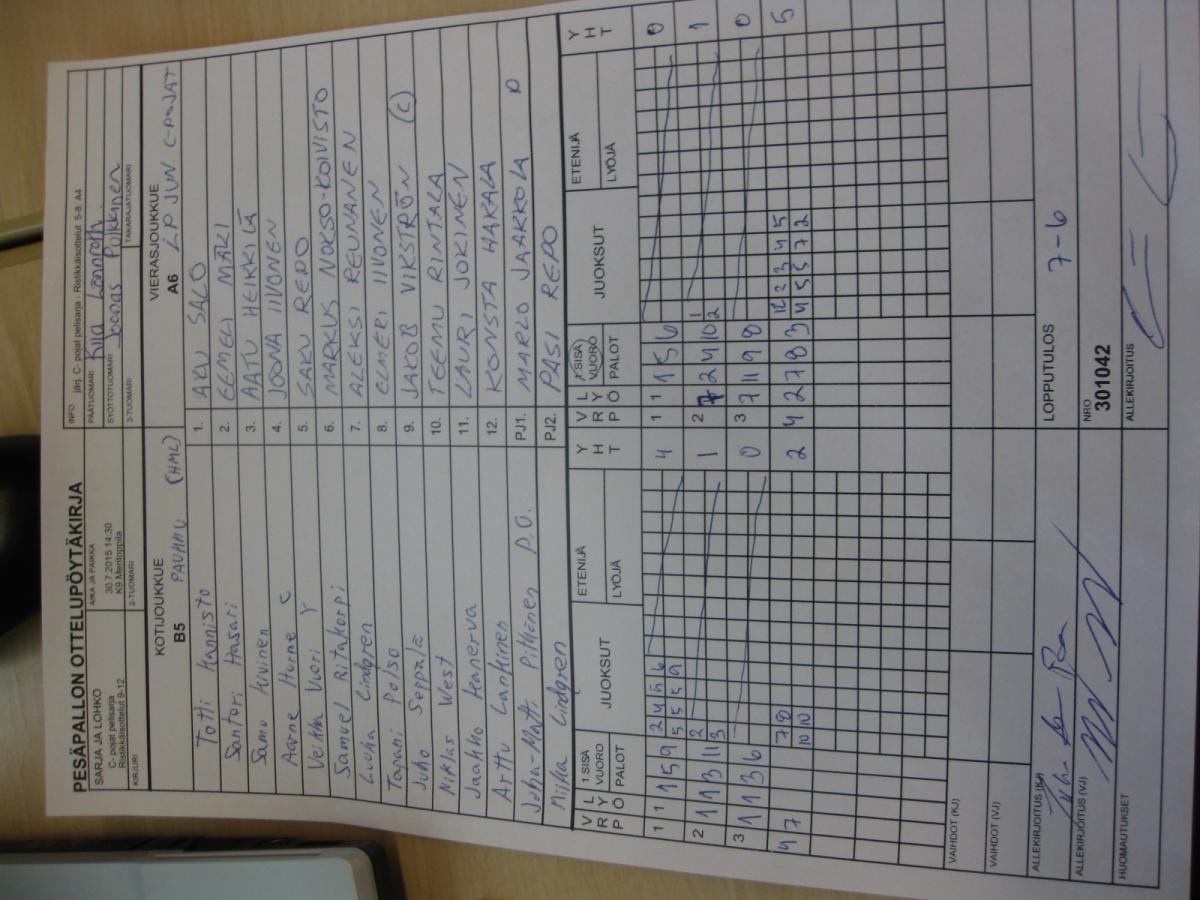 PESÄPALLON OTTELUPÖYTÄKIRJA
SARJA JA LOHKO
C- pojat pelisarja
Ristikkäisottelut 9-12
AIKA JA PAIKKA
30.7.2015 14:30
K9 Meritoppila
INFO järj. C- pojat pelisarja - Ristikkäisottelut 5-8: A4
PÄÄTUOMARI
SYÖTTÖTUOMARI Joonas Pulkkinen
KIRJURI
2-TUOMARI
3-TUOMARI
TAKARAJATUOMARI
KOTIJOUKKUE
B5 PAUHHU (HML)
VIERASJOUKKUE
A6 LP JUN C-POJAT
Totti Hannisto
Santeri Hasari
Samu Kivinen
Aarne Hurme C
Veikka Vuori Y
Samuel Ritakorpi
Luuka Lindgren
Tapani Polso
Juho Seppälä
Niklas West
Jaakko Hanerva
Arttu Lanhinen
Juha-Matti Pithänen P.O.
Miika Lindgren
1. AKU SALO
2. EEMELI MÄKI
3. AATU HEIKKILÄ
4. JOONA IIVONEN
5. SAKU REPO
6. MARKUS NOKSO-KOIVISTO
7. ALEKSI REUNANEN
8. ELMERI IIVONEN
9. JAKOB VIKSTRÖN (C)
10. TEEMU RINTALA
11. LAURI JOKINEN
12. KONSTA HAKALA
PJ1. MARLO JAAKKOLA P
PJ2. PASI REPO
V R P
L Y Ö
1.SISÄ
VUORO
PALOT
JUOKSUT
ETENIJÄ
LYÖJÄ
Y H T
V R P
L Y Ö
1.SISÄ
VUORO
PALOT
JUOKSUT
ETENIJÄ
LYÖJÄ
Y H T
1 1 1 5 9
2 4 5 6
5 5 5 9
4
1 1 1 5 6
0
2 1 1 3 11
2
3
1
2 7 2 4 10
1
2
1
3 1 1 3 6
0
3 7 11 9 8
0
4 7
7 8
10 10
2
4 2 7 8 3
1 2 3 4 5
4 5 5 7 2
5
VAIHDOT (KJ)
VAIHDOT (VJ)
ALLEKIRJOITUS (KJ)
LOPPUTULOS 7-6
ALLEKIRJOITUS (VJ)
NRO
301042
HUOMAUTUKSET
ALLEKIRJOITUS